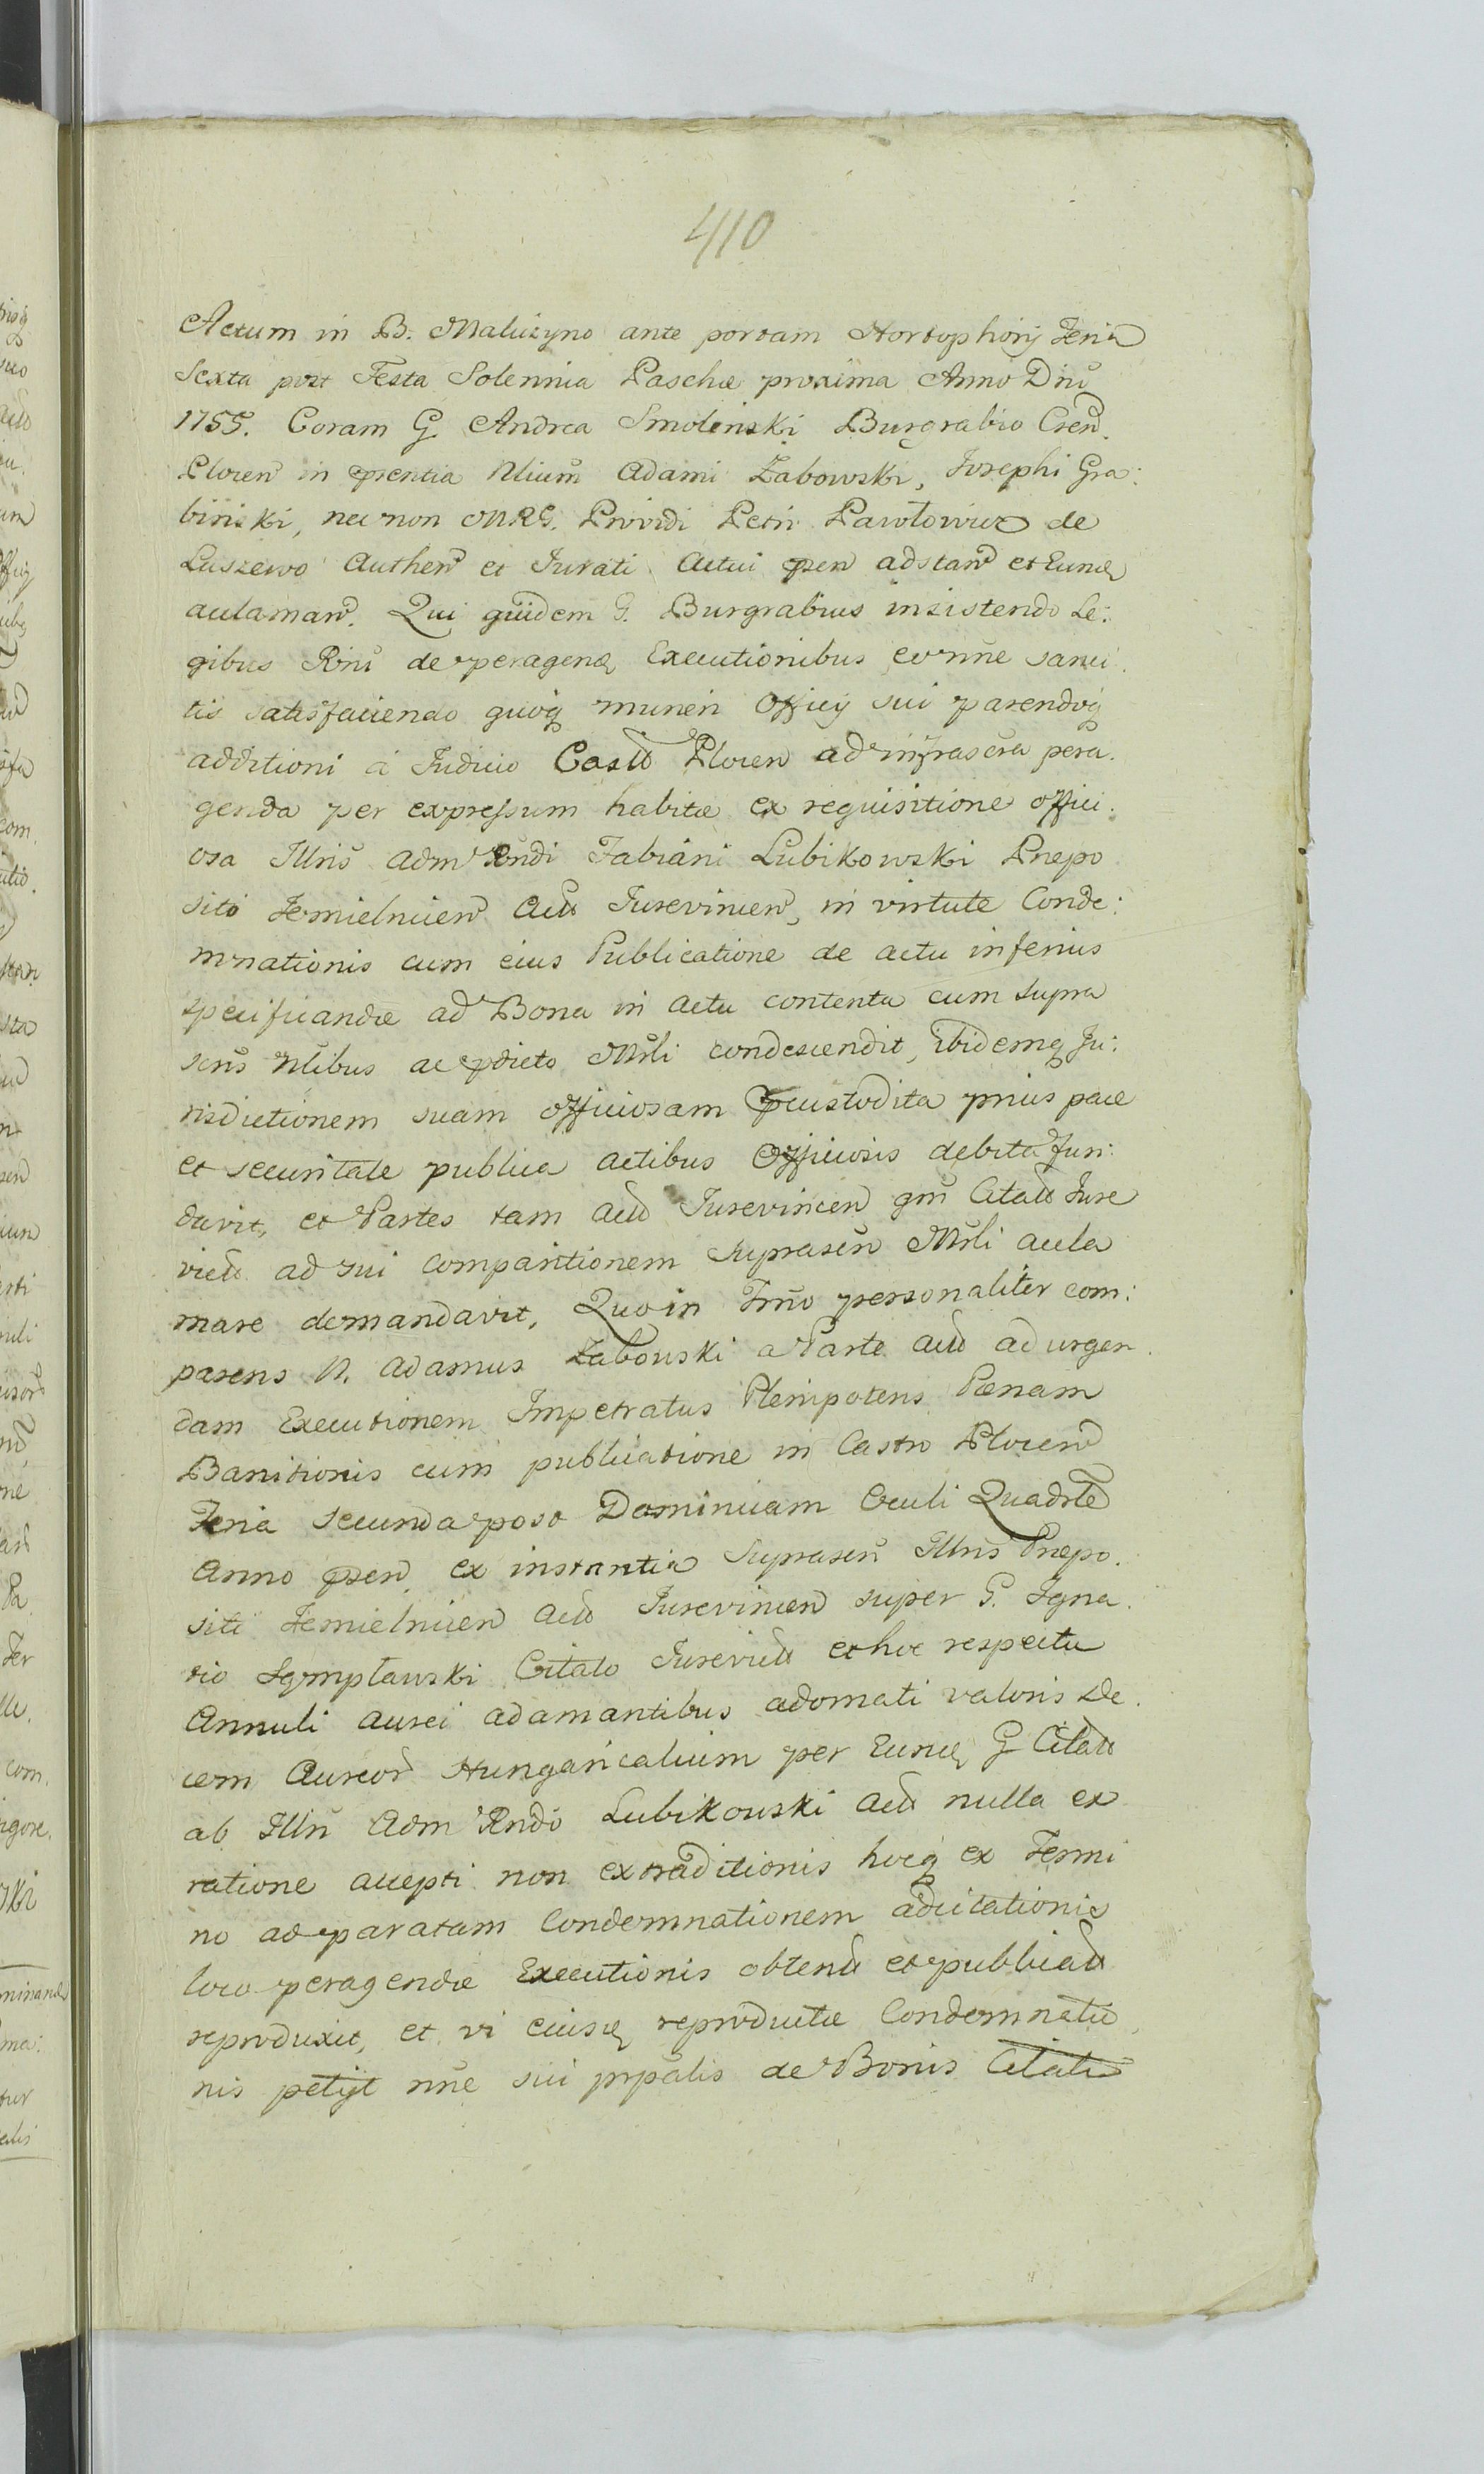 410
Actum in B. Maluzyno ante portam Hortophorij Feria
Sexta post Festa Solennia Paschæ proxima Anno Dnĩ
1755. Coram G. Andrea Smolenski Burgrabio Cren
Plocen in prentia Nlium Adami Zabowski, Josephi Gra:
binski, nec non MRG. Providi Petri Pawłowicz de
Luszewo Authen et Jurati Actui pren adstan et Eund
aclaman. Qui quidem G. Burgrabius insistendo Le:
gibus Rni de peragend Executionibus eo nne sanci.
tis satisfaciendo quoq muneri Officij sui parendoq
additioni à Judicio Castt Plocen ad infrascra pera.
genda per expressum habitæ ex requisitione offici.
osa Illris Adm Rndi Fabiani Lubikowski Præpo
siti Jemielnicen Actt Jurevincen, in virtute Conde:
mnationis cum eius Publicatione de actu inferius
specificandæ ad Bona in Actu contenta cum supra
scris Nlibus ac pdicto Mrli condescendit, ibidemq Ju:
risdictionem suam officiosam pcustodita prius pace
et securitate publica actibus Officiosis debita fun:
davit, et Partes tam Act Jurevincen qm Citatt Jure
victt ad sui comparitionem Suprascrn Mrli acla
mare demandavit, Quo in Tmno personaliter com:
parens N. Adamus Zabowski a Parte Act ad urgen.
dam Executionem Impetratus Plenipotens Pænam
Banitionis cum publicatione in Castro Plocen
Feria Secunda post Dominicam Oculi Quadrle
Anno pren ex instantia Suprascrn Illris Præpo.
siti Jemielnicen Act Jurevincen super G. Igna.
tio Sgmpławski Citato Jurevictt ex hoc respectu
Annuli aurei adamantibus adornati valoris De.
cem Aureor Hungaricalium per Eund G Citatt
ab Illri Adm Rndo Lubikowski Actt nulla ex
ratione accepti non extraditionis hocq ex Termi
no ad paratam Condemnationem adcitationis
loco peragendæ Executionis obtentt et publicatt
reproduxit, et vi eiusd reproductæ Condemnatio
nis petijt nne sui prpalis de Bonis Citati